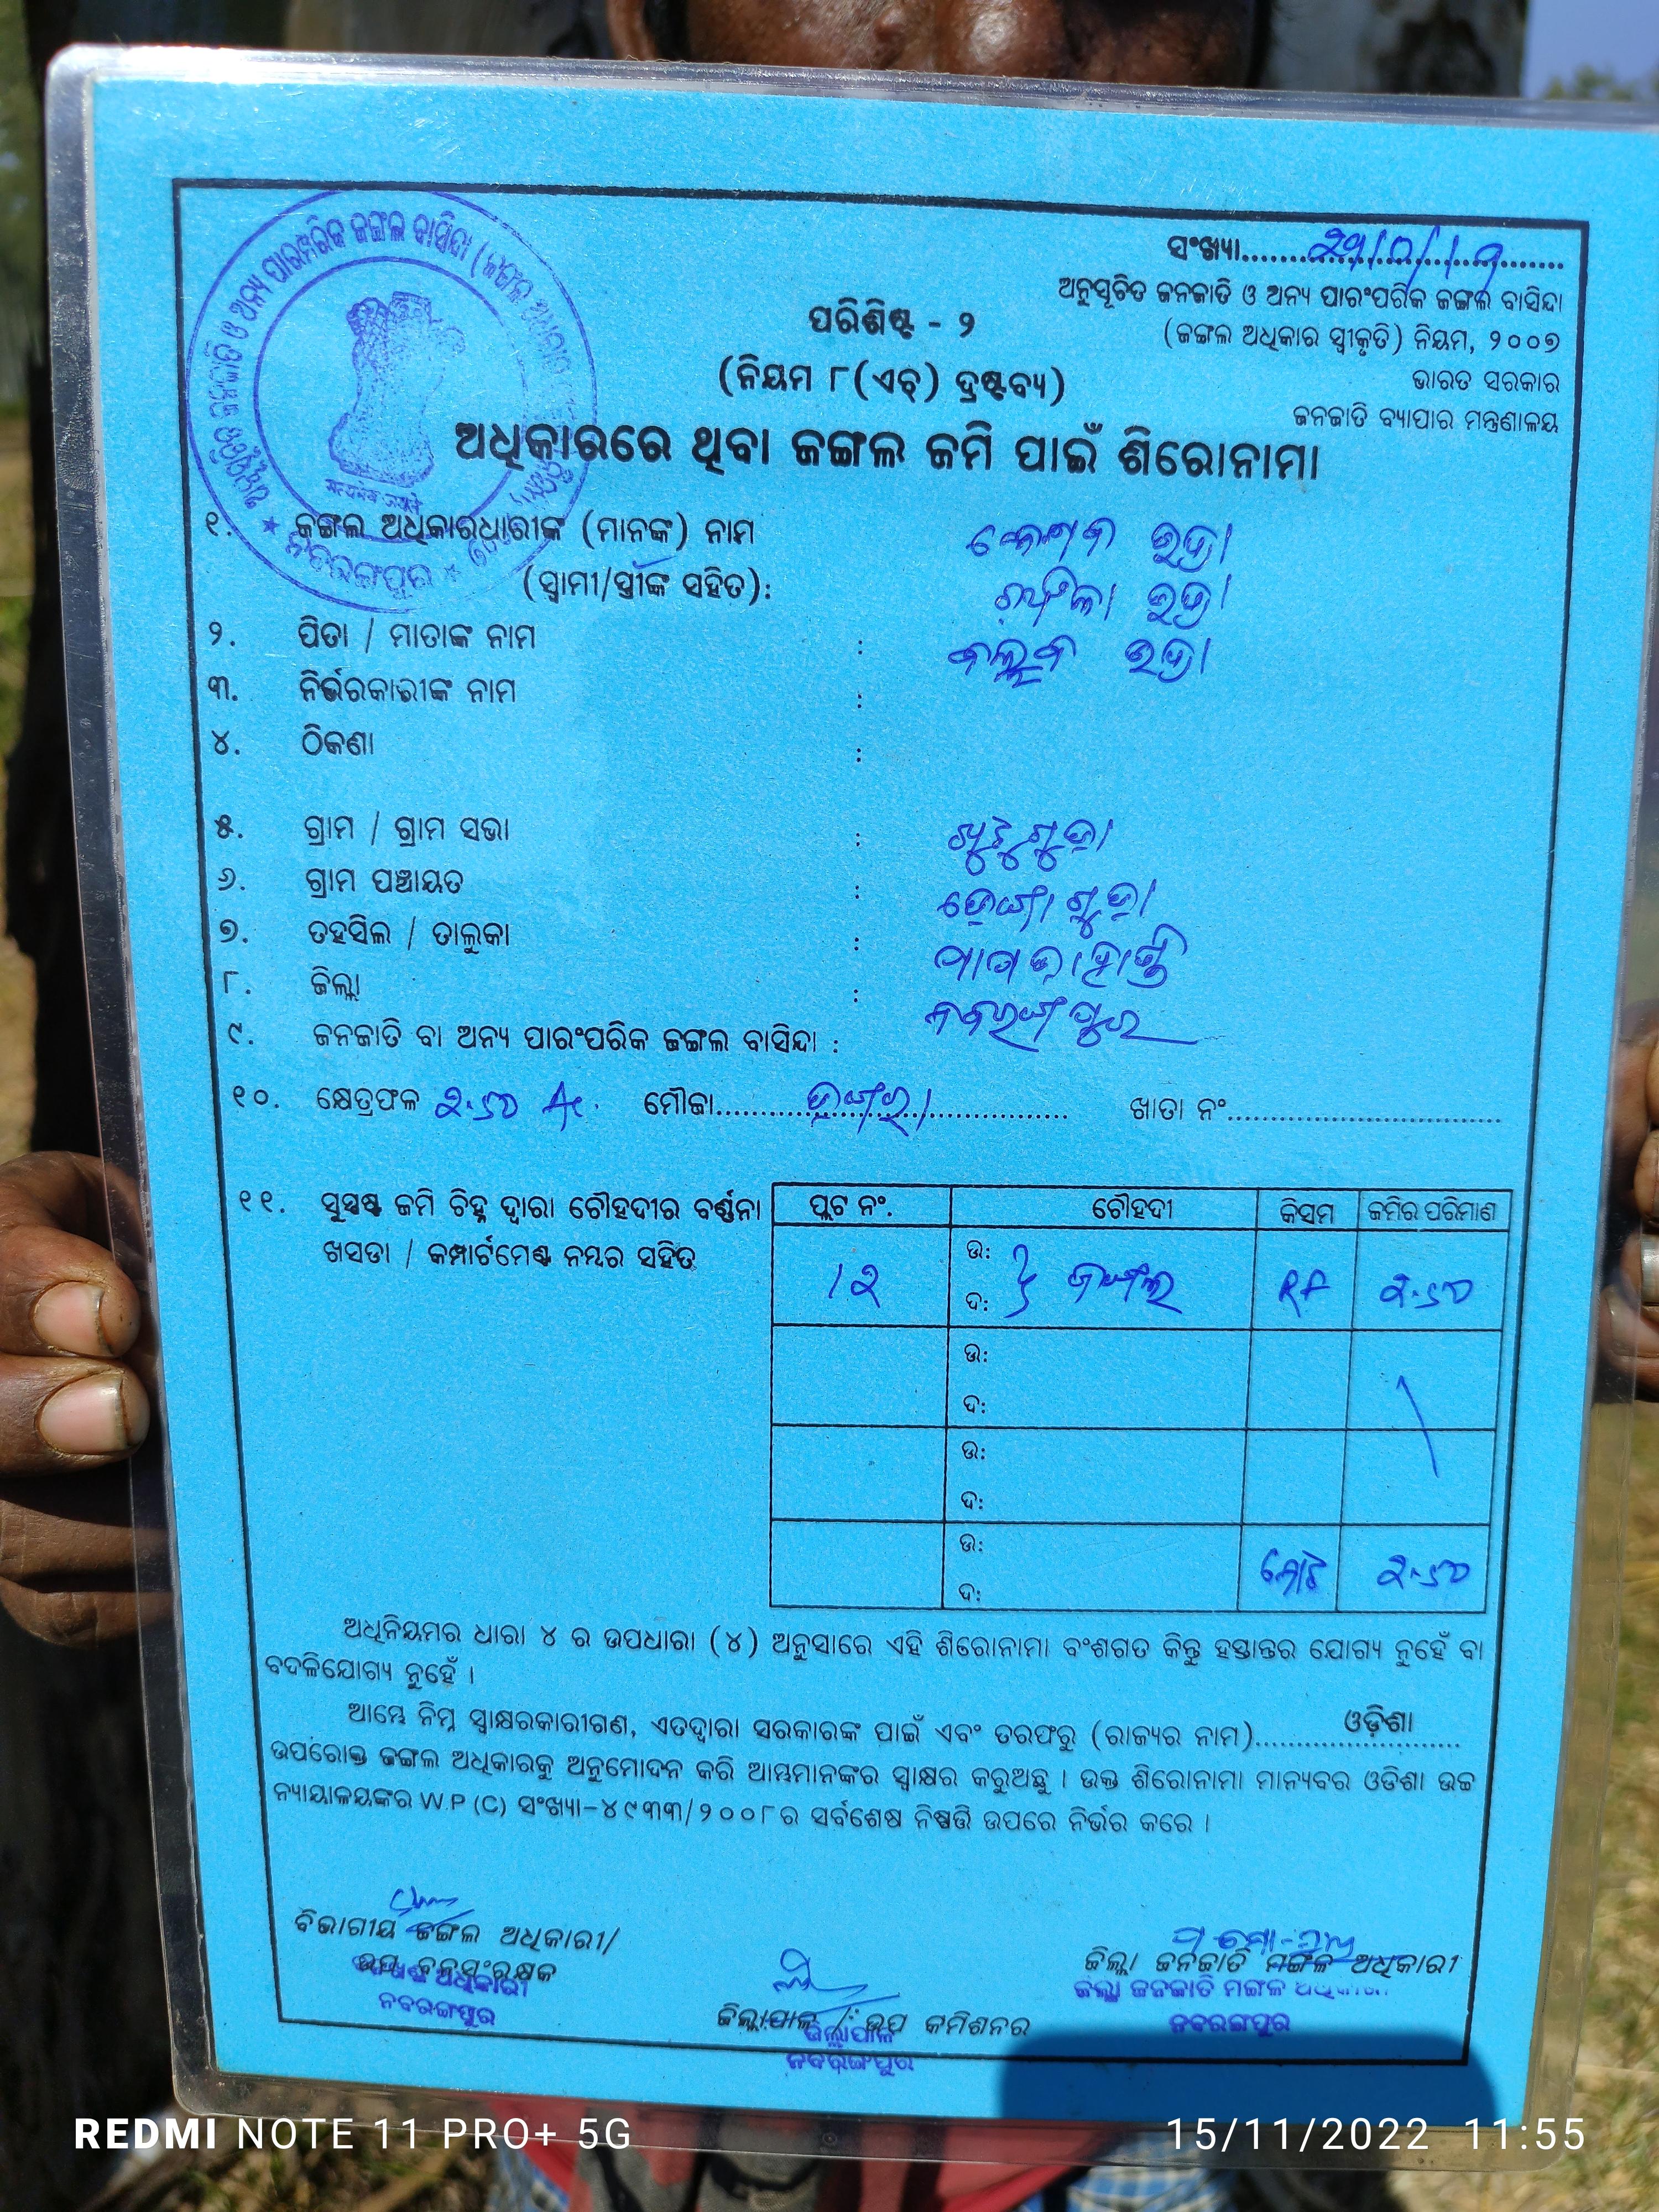 ସଂଖ୍ୟା
ଅନୁସୂଚିତ ଜନଜାତି ଓ ଅନ୍ୟ ପାରଂପରିକ ଜଙ୍ଗଲ ବାସିନ୍ଦା
(ଜଙ୍ଗଲ ଅଧିକାର ସ୍ଵୀକୃତି) ନିୟମ, ୨୦୦୭
ଭାରତ ସରକାର
ଜନଜାତି ବ୍ୟାପାର ମନ୍ତ୍ରଣାଳୟ
ପରିଶିଷ୍ଟ - ୨
(ନିୟମ ୮(ଏଚ୍) ଦ୍ରଷ୍ଟବ୍ୟ)
ଅଧିକାରରେ ଥିବା ଜଙ୍ଗଲ ଜମି ପାଇଁ ଶିରୋନାମା
୧. ଜଙ୍ଗଲ ଅଧିକାରଧାରୀଙ୍କ (ମାନଙ୍କ) ନାମ
(ସ୍ୱାମୀ/ସ୍ତ୍ରୀଙ୍କ ସହିତ):
୨. ପିତା / ମାତାଙ୍କ ନାମ :
୩. ନିର୍ଭରକାରୀଙ୍କ ନାମ :
୪. ଠିକଣା :
୫. ଗ୍ରାମ / ଗ୍ରାମ ସଭା :
୬. ଗ୍ରାମ ପଞ୍ଚାୟତ :
୭. ତହସିଲ / ତାଲୁକା : ପାପଡ଼ାହାଣ୍ଡି
୮. ଜିଲ୍ଲା : ନବରଙ୍ଗପୁର
୯. ଜନଜାତି ବା ଅନ୍ୟ ପାରଂପରିକ ଜଙ୍ଗଲ ବାସିନ୍ଦା :
୧୦. କ୍ଷେତ୍ରଫଳ 2.50 Ac. ମୌଜା ଖାତା ନଂ
୧୧. ସୁସ୍ପଷ୍ଟ ଜମି ଚିହ୍ନ ଦ୍ୱାରା ଚୌହଦୀର ବର୍ଣ୍ଣନା
ଖସଡା / କମ୍ପାର୍ଟମେଣ୍ଟ ନମ୍ବର ସହିତ
ପ୍ଲଟ ନଂ. ଚୌହଦୀ କିସମ ଜମିର ପରିମାଣ
12 ଉ: ଦ: ଜଙ୍ଗଲ RF 2.50
ଉ:
ଦ:
ଉ:
ଦ:
ଉ:
ଦ: ମୋଟ 2.50
ଅଧିନିୟମର ଧାରା ୪ ର ଉପଧାରା (୪) ଅନୁସାରେ ଏହି ଶିରୋନାମା ବଂଶଗତ କିନ୍ତୁ ହସ୍ତାନ୍ତର ଯୋଗ୍ୟ ନୁହେଁ ବା
ବଦଳିଯୋଗ୍ୟ ନୁହେଁ ।
ଆମ୍ଭେ ନିମ୍ନ ସ୍ୱାକ୍ଷରକାରୀଗଣ, ଏତଦ୍ୱାରା ସରକାରଙ୍କ ପାଇଁ ଏବଂ ତରଫରୁ (ରାଜ୍ୟର ନାମ) ଓଡ଼ିଶା
ଉପରୋକ୍ତ ଜଙ୍ଗଲ ଅଧିକାରକୁ ଅନୁମୋଦନ କରି ଆମ୍ଭମାନଙ୍କର ସ୍ୱାକ୍ଷର କରୁଅଛୁ । ଉକ୍ତ ଶିରୋନାମା ମାନ୍ୟବର ଓଡିଶା ଉଚ୍ଚ
ନ୍ୟାୟାଳୟଙ୍କର W.P (C) ସଂଖ୍ୟା-୪୯୩୩/୨୦୦୮ ର ସର୍ବଶେଷ ନିଷ୍ପତ୍ତି ଉପରେ ନିର୍ଭର କରେ ।
ବିଭାଗୀୟ ଜଙ୍ଗଲ ଅଧିକାରୀ/
ଉପ ବନସଂରକ୍ଷକ
ନବରଙ୍ଗପୁର
ଜିଲ୍ଲାପାଳ / ଉପ କମିଶନର
ଜିଲ୍ଲାପାଳ
ନବରଙ୍ଗପୁର
ଜିଲ୍ଲା ଜନଜାତି ମଙ୍ଗଳ ଅଧିକାରୀ
ଜିଲ୍ଲା ଜନଜାତି ମଙ୍ଗଳ ଅଧିକାରୀ
ନବରଙ୍ଗପୁର
REDMI NOTE 11 PRO+ 5G 15/11/2022 11:55